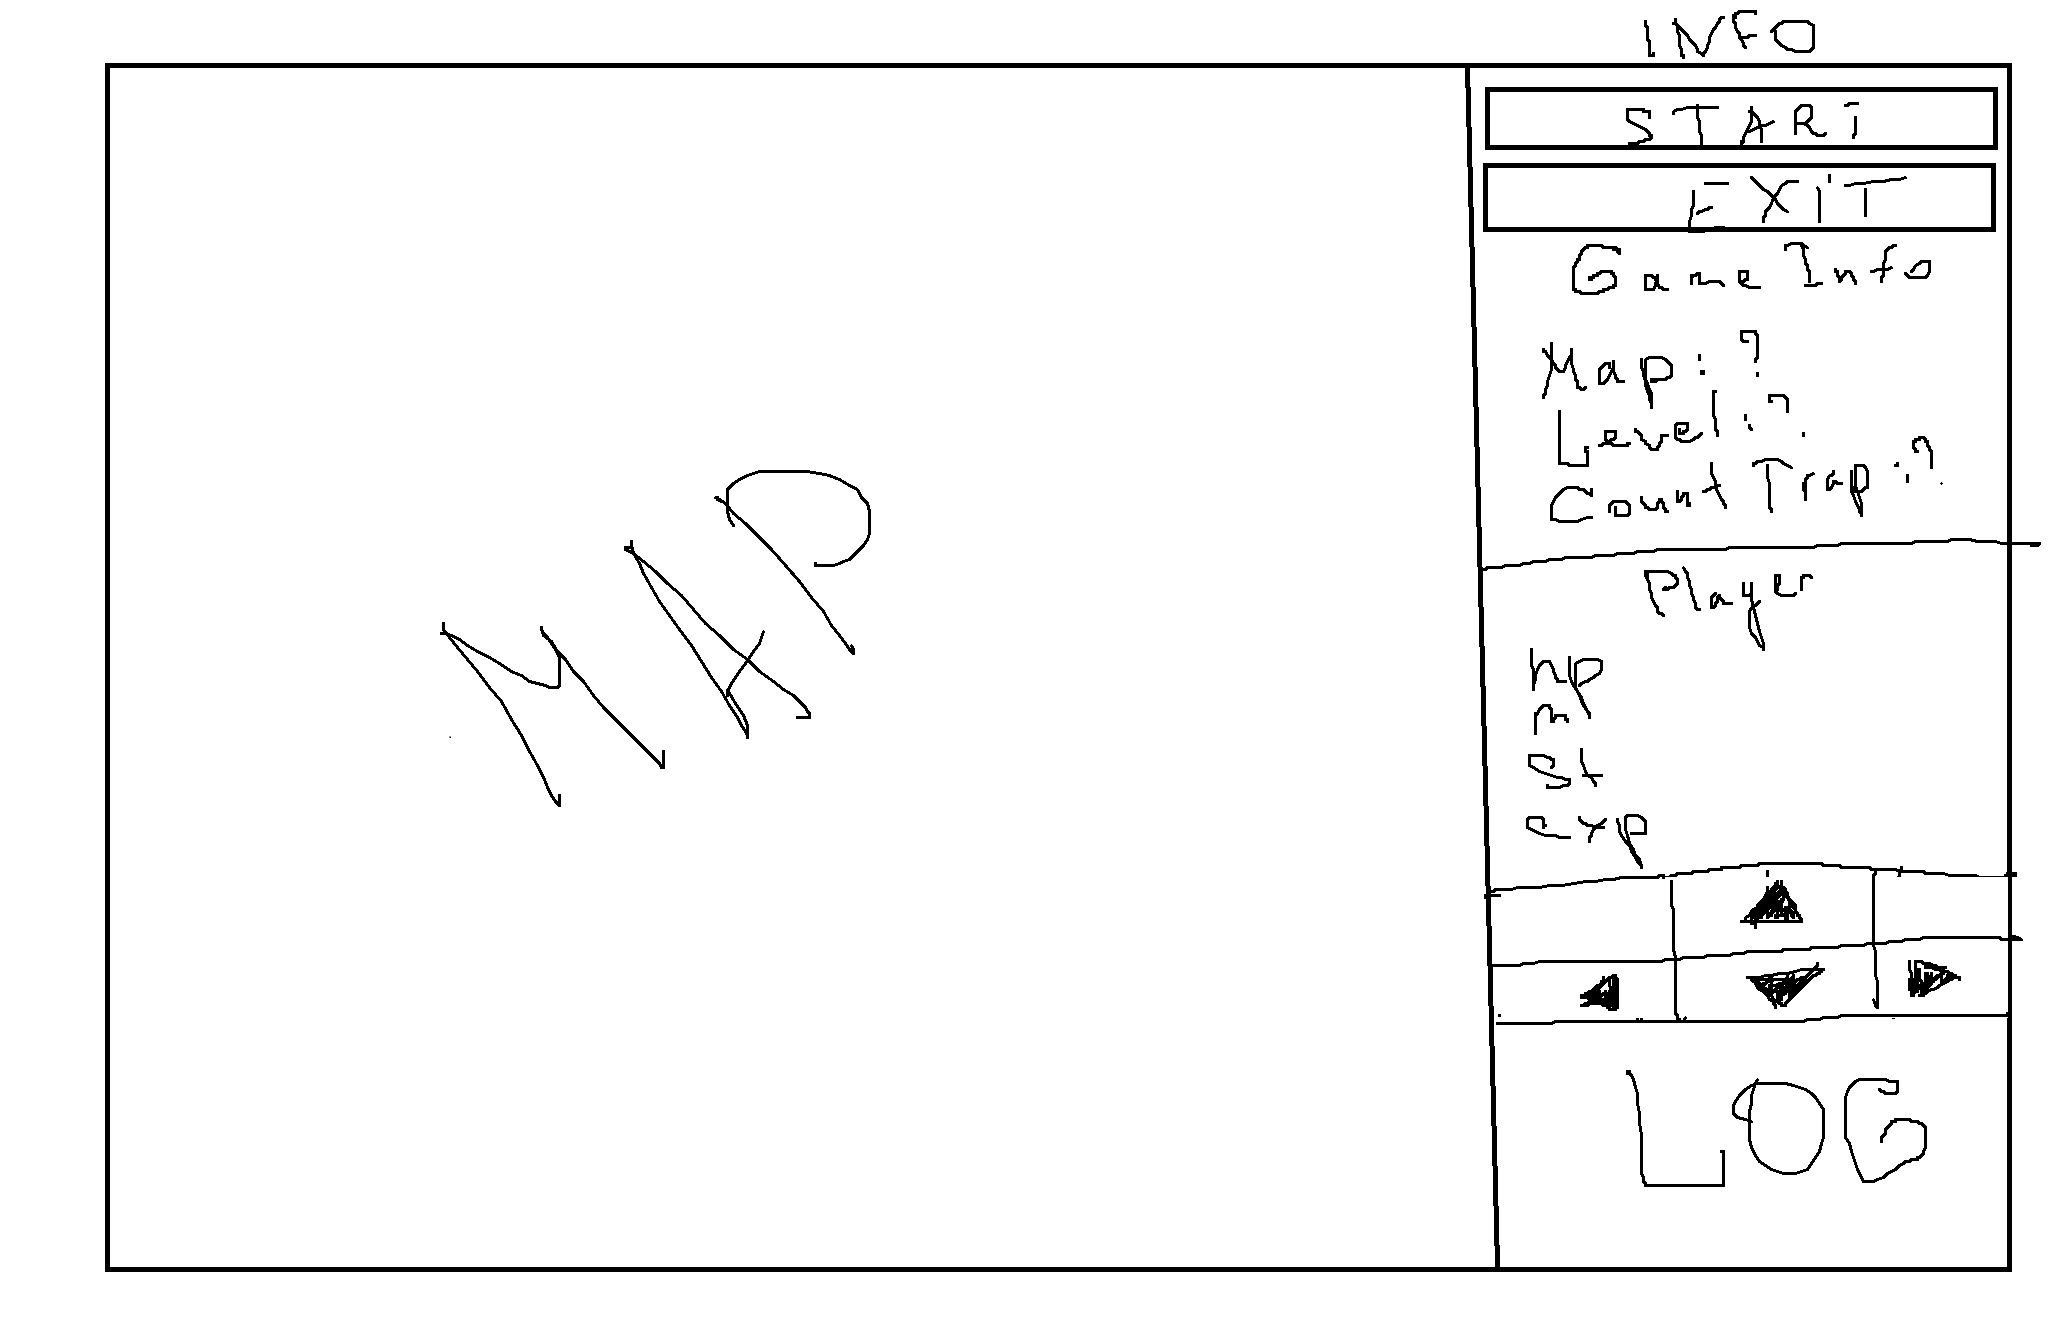 INFO
START
EXIT
Game Info
Map: ?
Level: ?
Count Trap: ?
Player
hp
m
st
exp
MAP
LOG